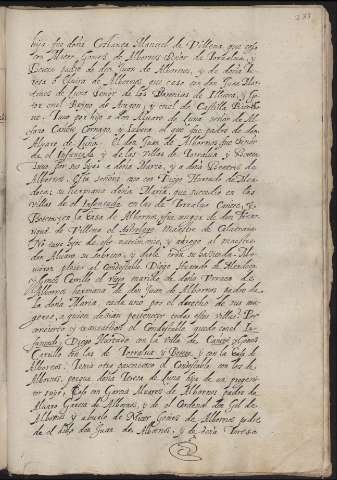 283
hija fue doña Costança Manuel de Villena que casó
con Micer Gomes de Albornos Señor de Torralua, y
Beteta padre de don Juan de Albornos, y de doña te-
resa ó Eluira de Albornos, que casó con don Juan Mar-
tines de Luna Señor de las Baronias de Illueca, y Go-
tor en el Reyno de Aragon, y en el de Castilla
Tuuo por hijo a don Aluaro de Luna señor de
Cañete Cornago, y Jubera el que fue padre de don
Aluaro de Luna. El don Juan de Albornos fue Señor
de el Infantado y de las villas de Torralua, y Beteta
tuuo por sus hijas a doña Maria, y a doña Beatris de
Albornos. Esta señora que con Diego Hurtado de Men-
doca; su hermana doña Maria, que sucedio en las
villas de el Infantado en las de Torralua Cañete, y
Beteta, y en la Casa de Albornos, fue muger de don Enri-
que de Villena el Astrologo Maestre de Calatraua
No tuuo hijos de este matrimonio, y adoptó al maestre
don Aluaro su sobrino, y diole toda su hasienda. Mo-
uieron pleito al Condestable Diego Hurtado de Mendoça
y Gomes Carrillo el viejo marido de doña Vrraca de
Albornos hermana de don Juan de Albornos padre de
la doña Maria cada uno por el derecho de sus mu-
geres, a quien desian pertenecer todas estas villas. Por
concierto y transaction el Condestable quedó con el In-
fantado, Diego Hurtado con la Villa de Cañete y Gomes
Carrillo con las de Torralua y Beteta, y con la Casa de
Albornos. Tenia otro parentesco el Condestable con los de
Albornos, porque doña Teresa de Luna hija de un progeni-
tor suyo, Casó con Garcia Aluares de Albornos padre de
Aluaro Garcia de Albornos, y de el Cardenal don Gil de
Albornos y abuelo de Micer Gomes de Albornos padre
de el dicho don Juan de Albornos, y de doña Teresa